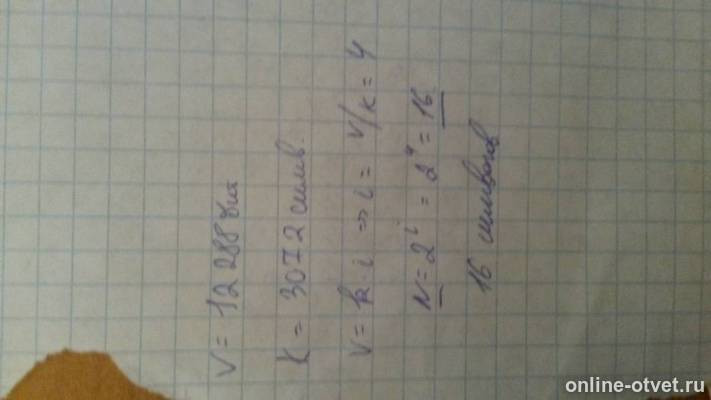 V = 12 288 бит
K = 3072 симв.
V = k·i => i = V/K = 4
N = 2^i = 2^4 = 16
16 символов
online-otvet.ru